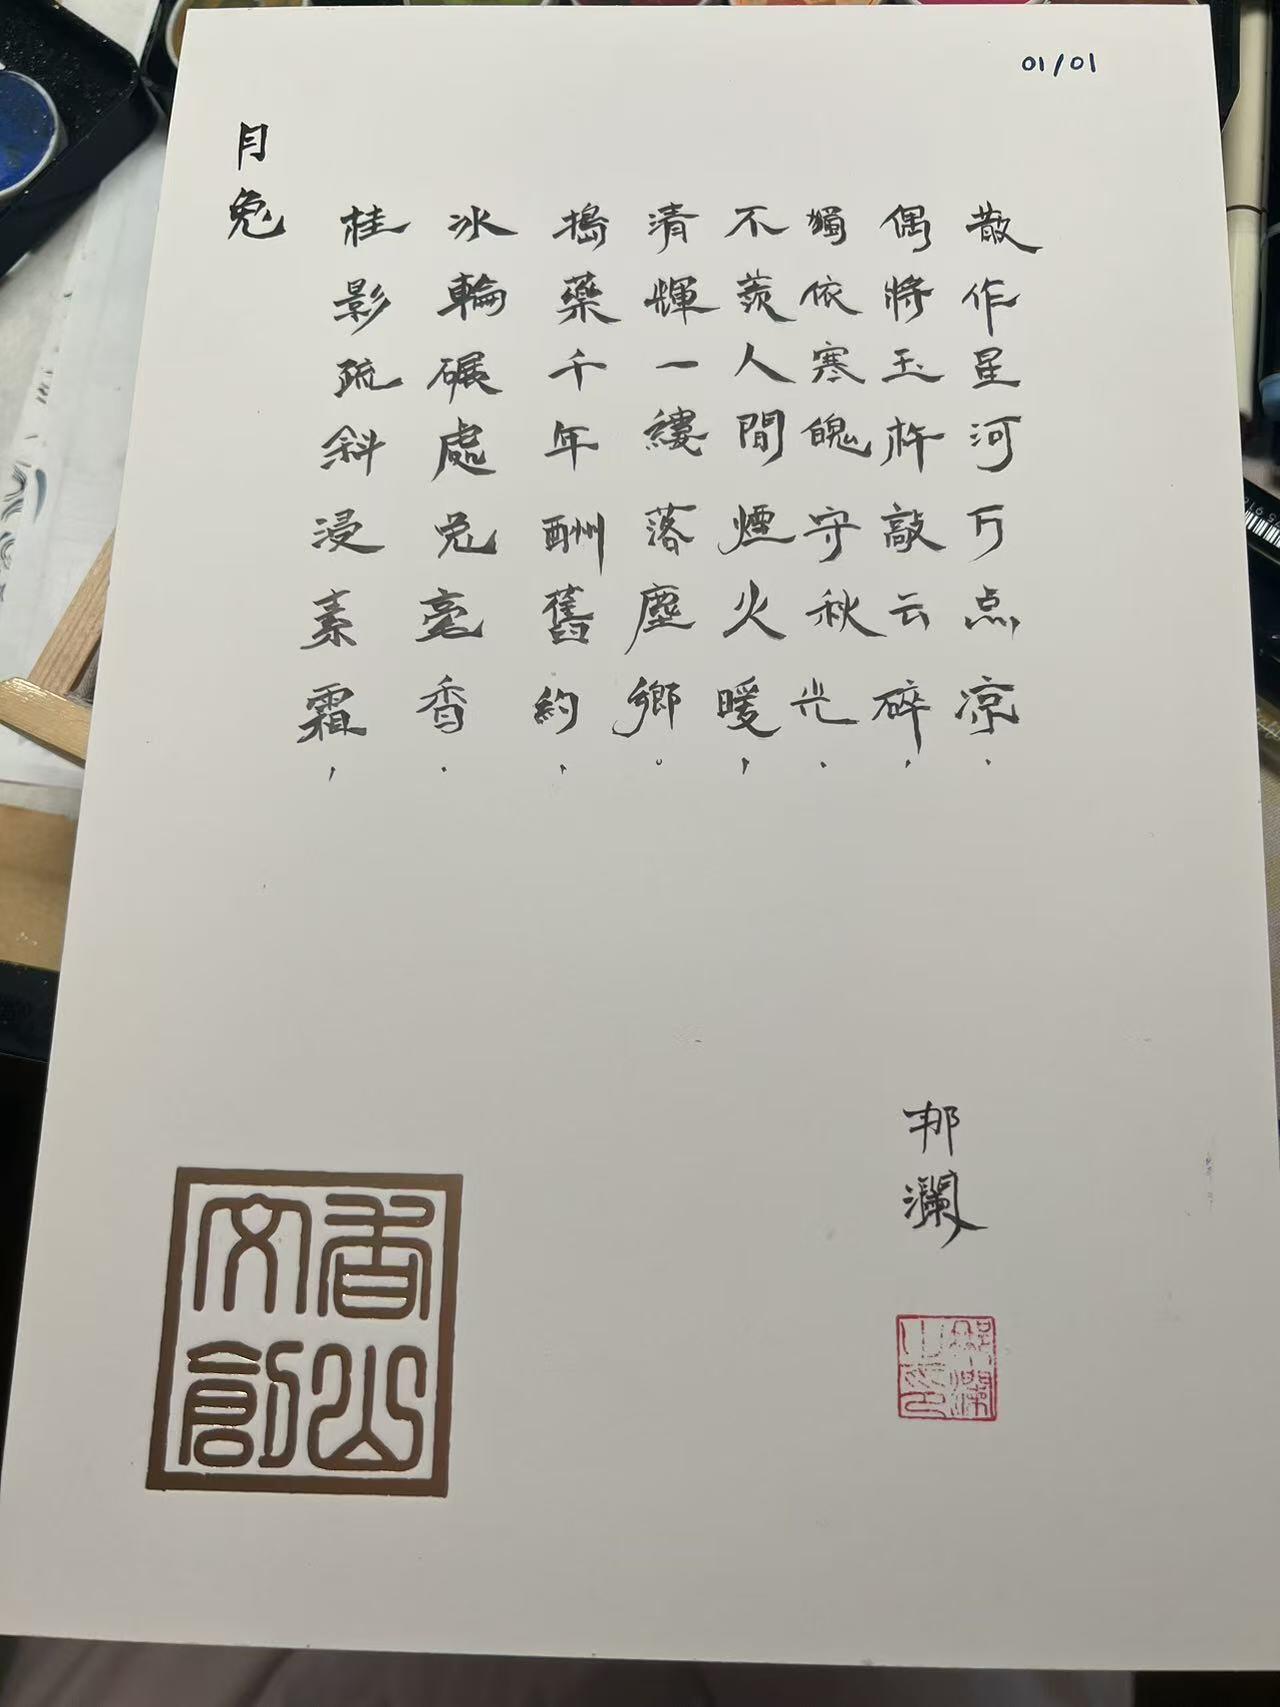 01/01
月兔
桂影疏斜浸素霜，
冰輪碾處兔毫香.
搗藥千年酬舊約，
清輝一縷落塵鄉。
不羨人間煙火暖，
獨依寒魄守秋光.
偶將玉杵敲云碎，
散作星河万点凉.
邦瀾
香山文創